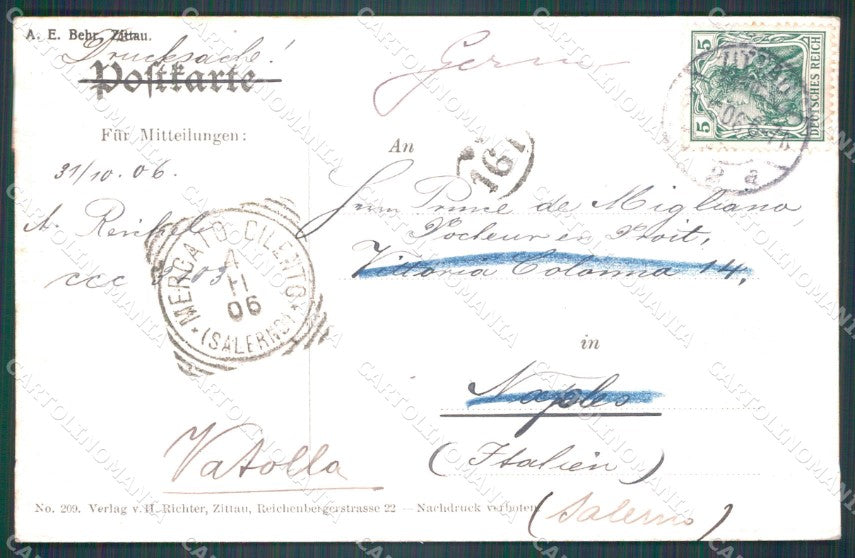 A. E. Behr, Zittau.
Drucksache!
Postkarte
Für Mitteilungen:
31/10.06.
A. Reichel
ccc
MERCATO CILENTO
4
11
06
(SALERNO)
Vatolla
5 DEUTSCHES REICH 5
ZITTAU
2 a
An
161
Prince de Migliano
Docteur en Droit,
Vittoria Colonna 14,
in
Naples
(Italien)
(Salerno)
No. 209. Verlag v. H. Richter, Zittau, Reichenbergerstrasse 22 — Nachdruck verboten.
CARTOLINOMANIA